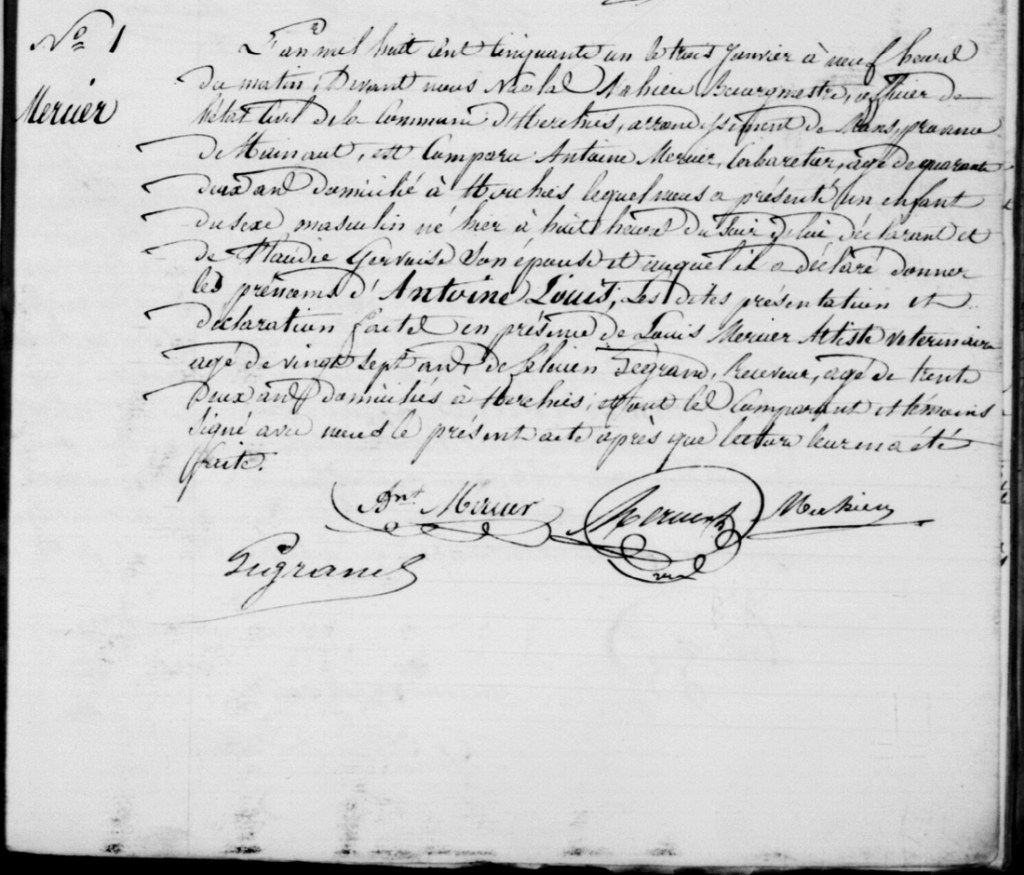 No 1
Mercier
L'an mil huit cent cinquante un le trois Janvier à neuf heures
du matin, Devant nous Nicolas Mahieu Bourgmestre, officier de
l'état Civil de la Commune d'Herchies, arrondissement de Mons, province
de Hainaut, est Comparu Antoine Mercier, Cabaretier, agé de quarante
deux ans domicilié à Herchies lequel nous a présenté un enfant
du sexe masculin né hier à huit heures du soir, de lui déclarant et
de Gervaise Son épouse et auquel il a déclaré donner
les prénoms d'Antoine Louis, Les dites présentation et
déclaration faites en présence de Louis Mercier Artiste vétérinaire
agé de vingt sept ans, de Legrand, Receveur, agé de trente
deux ans domiciliés à Herchies; et ont les Comparant et témoins
signé avec nous le présent acte après que lecture leur en a été
faite.
Ant Mercier Mercier Mahieu
Legrand